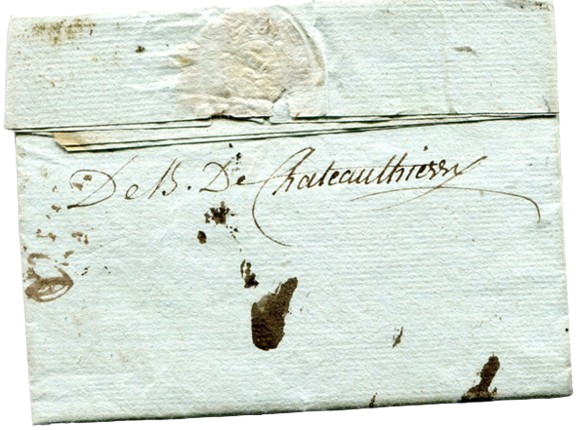 De B. De Chateauthierry